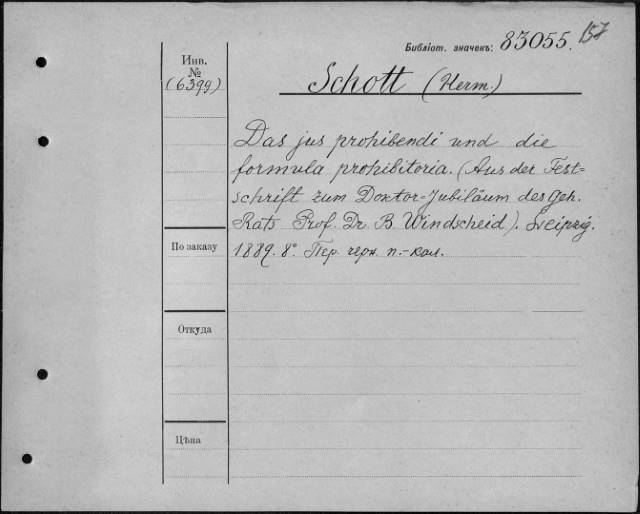 Библіот. значекъ: 83055. 157
Инв.
№
(6399)
Schott (Herm.)
Das jus prohibendi und die
formula prohibitoria. (Aus der Fest-
schrift zum Doktor-Jubiläum des Geh.
Rats Prof. Dr. B. Windscheid). Leipzig.
1889. 8° Пер. черн. п.-кол.
По заказу
Откуда
Цѣна